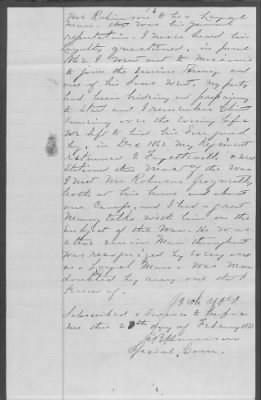 Mr Robinson to be a Loyal
man. that was his general
reputation. I never heard his
loyalty questioned. in June
1862 I went out to Missouri
to join the Union Army. and
one of his sons went. My party
had been hiding and preparing
to start and I remember
coming over the Evening before
we left to bid his Son good
by. in Dec 1862 my Regiment
returned to Fayetteville & was
stationed there most of the War
I met Mr Robinson frequently
both at his home and about
our Camp. and I had a great
Many talks with him on the
subject of the War. He was
a Union Man throughout
was recognized by every one
as a Loyal Man. Was
doubted by any one that I
know of.
Jacob Yoes
Subscribed & Sworn to before
me this 2 th day of Feb
Special Com.